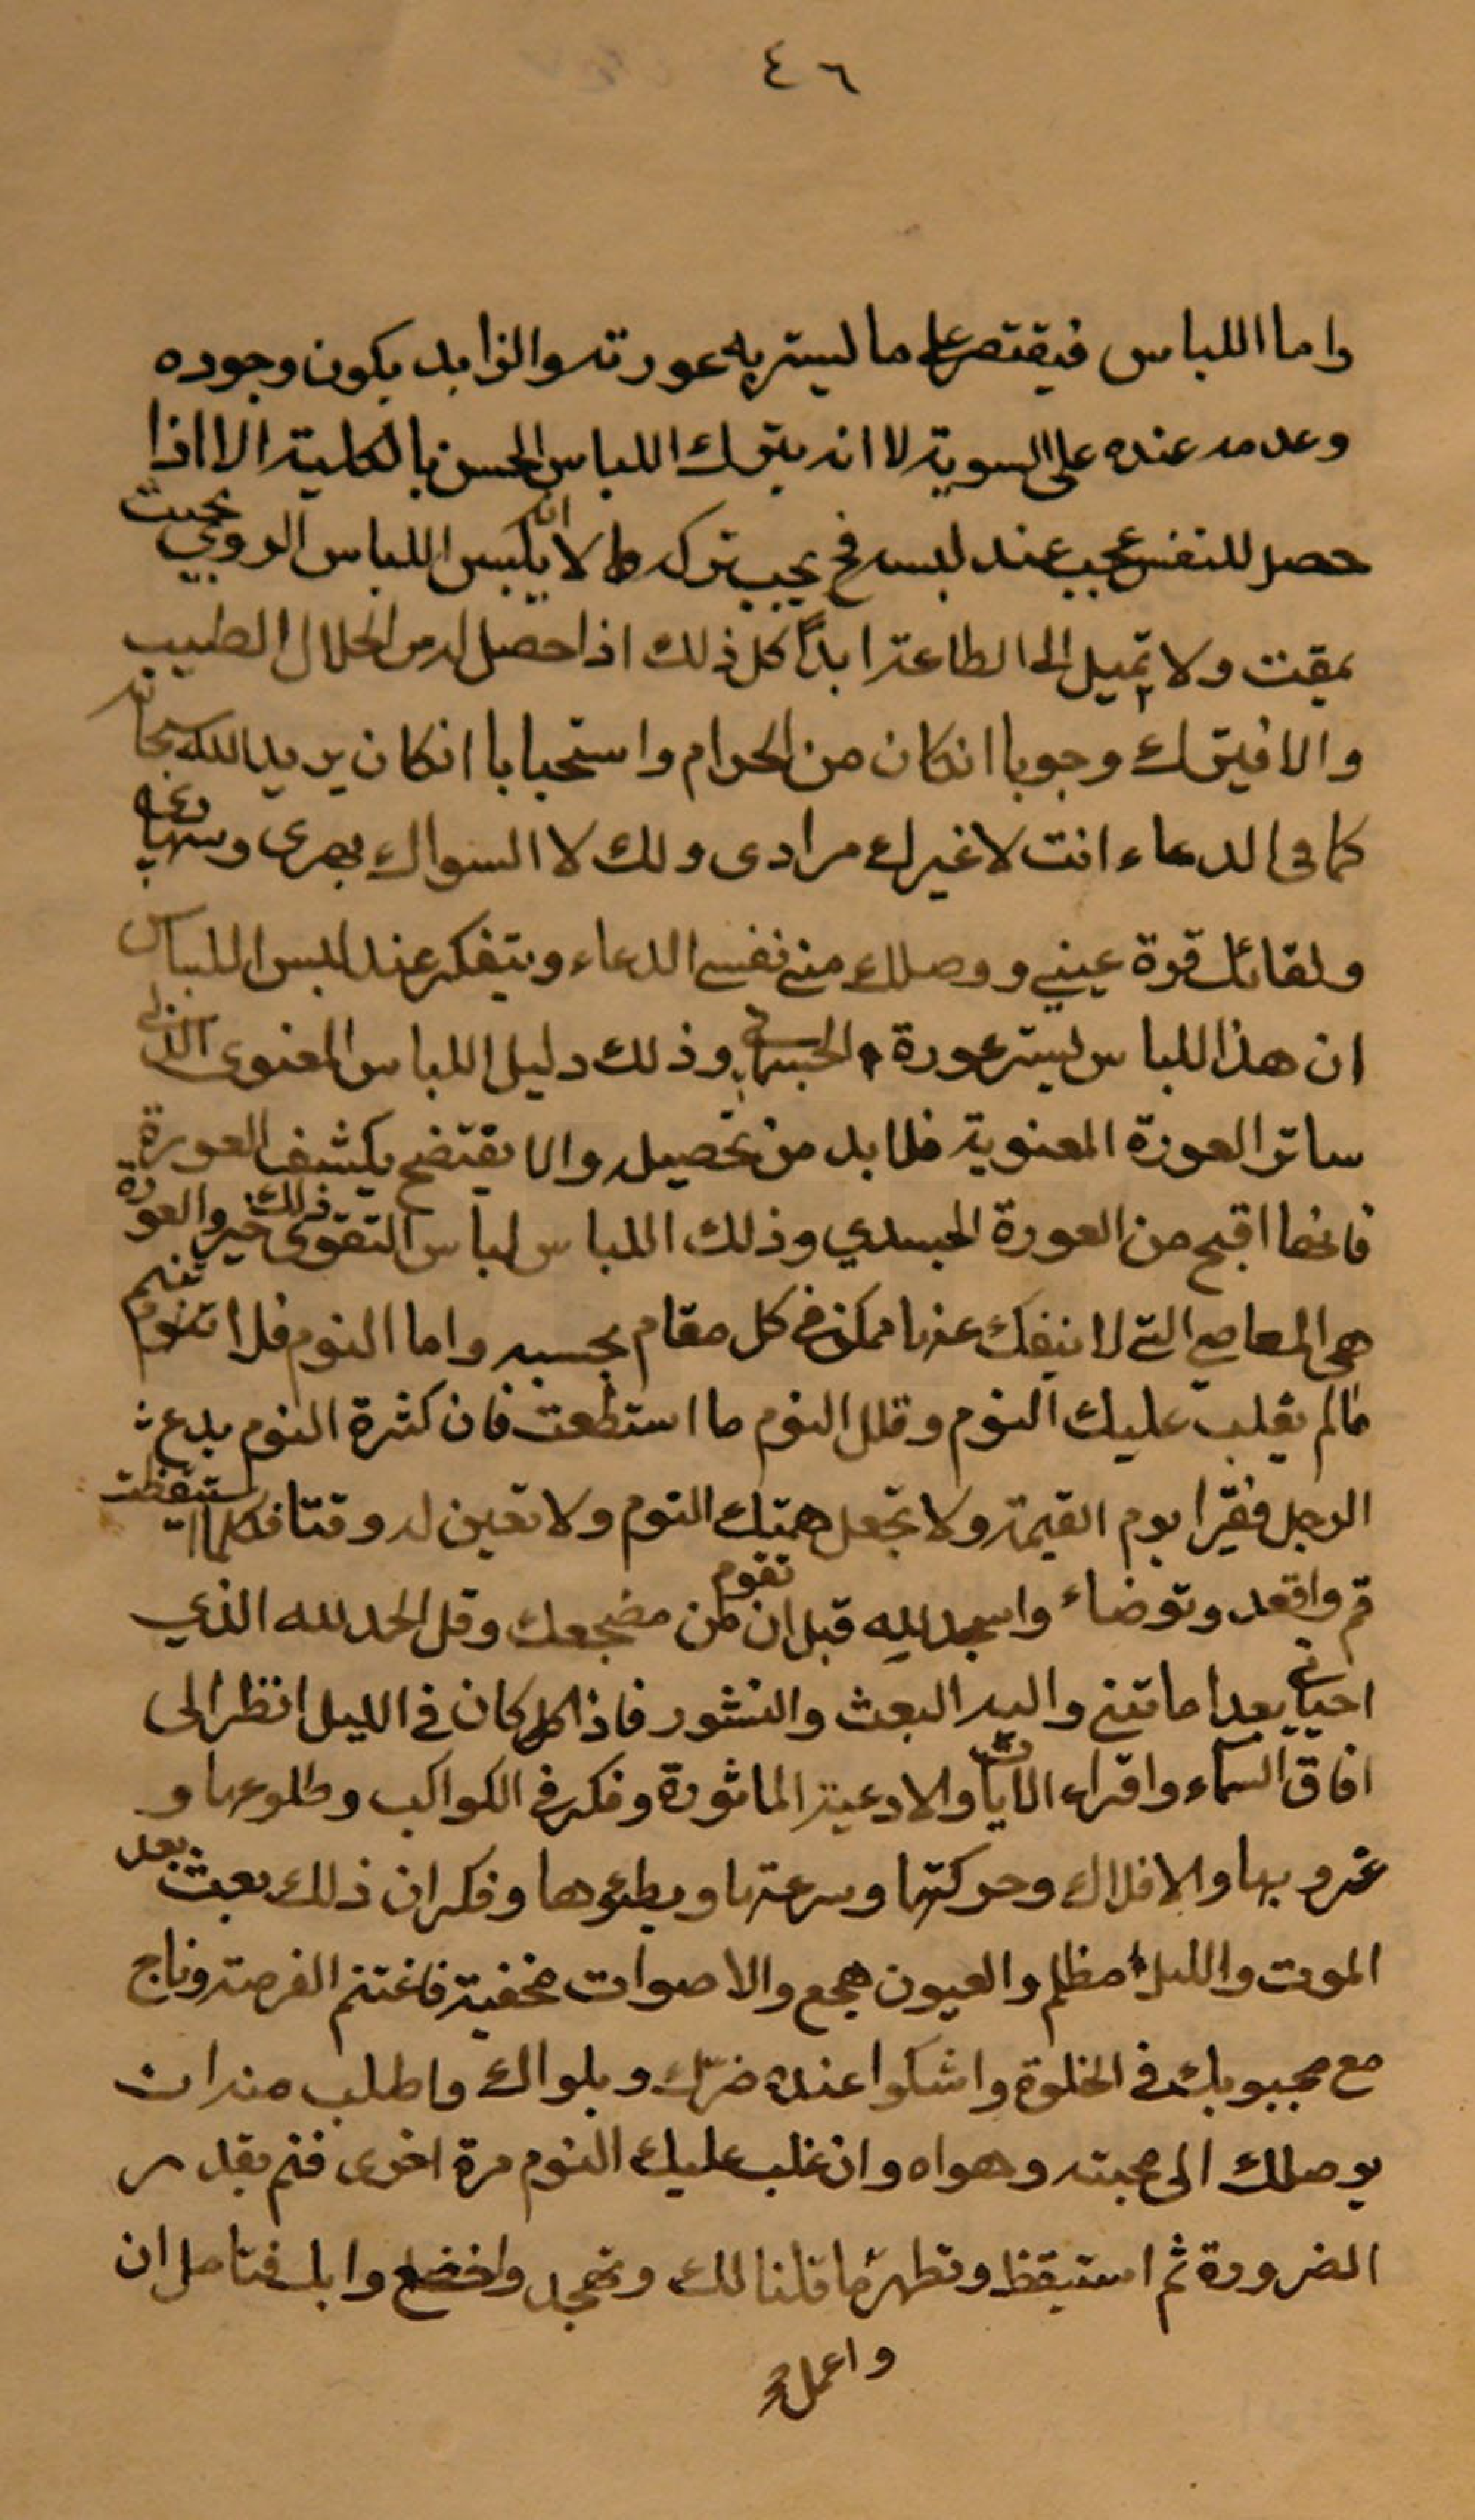 ٤٦
واما اللباس فيقتصر على ما ليستر به عورته والزايد يكون وجوده
وعدمه عنده على السوية لا انه يترك اللباس الحسن بالكلية الا اذا
حصل للنفس عجب عند لبسه فح يجب تركه كما لا انه يلبس اللباس الردي بحيث
يمقت ولا تميل الى الطاعة ابداً كل ذلك اذا حصل له من الحلال الطيب
والا فيترك وجوبا انكان من الحرام واستحبابا انكان يريد الله سبحانه
كما في الدعاء انت لا غيرك مرادى ولك لا السواك سهرى وسهادى
ولقائك قرة عيني ووصلك منى نفسى الدعاء ويتفكر عند لبس اللباس
ان هذا اللباس ليستر عورة الجسمانى وذلك دليل اللباس المعنوى الذي
ساتر العورة المعنوية فلا بد من تحصيله والا يفتضح بكشف العورة
فانها اقبح من العورة الجسدي وذلك اللباس لباس التقوى ذلك خير والعورة
هى المعاصي التى لا ينفك عنها ممكن في كل مقام بحسبه واما النوم فلا تنم
مالم يغلب عليك النوم وقلل النوم ما استطعت فان كثرة النوم يدع
الرجل فقيرا يوم القيمة ولا تجعل همتك النوم ولا تعين له وقتا فكلما استيقظت
قم واقعد وتوضاء واسجد لله قبل ان تقوم من مضجعك وقل الحمد لله الذي
احياني بعد اماتنى واليه البعث والنشور فاذا كان في الليل انظر الى
افاق السماء واقراء الايات والادعية الماثورة وفكر في الكواكب وطلوعها و
غروبها والافلاك وحركتها وسرعتها وبطوءها وفكر ان ذلك بعث بعد
الموت والليل مظلم والعيون هجع والاصوات مخفية فاغتنم الفرصة وناج
مع محبوبك في الخلوة واشكوا عنده ضرك وبلواك واطلب منه ان
يوصلك الى محبته وهواه وان غلب عليك النوم مرة اخرى فنم بقدر
الضرورة ثم استيقظ وتطهر ما قلنا لك وتهجد واخضع وابك فتامل ان
واعمل